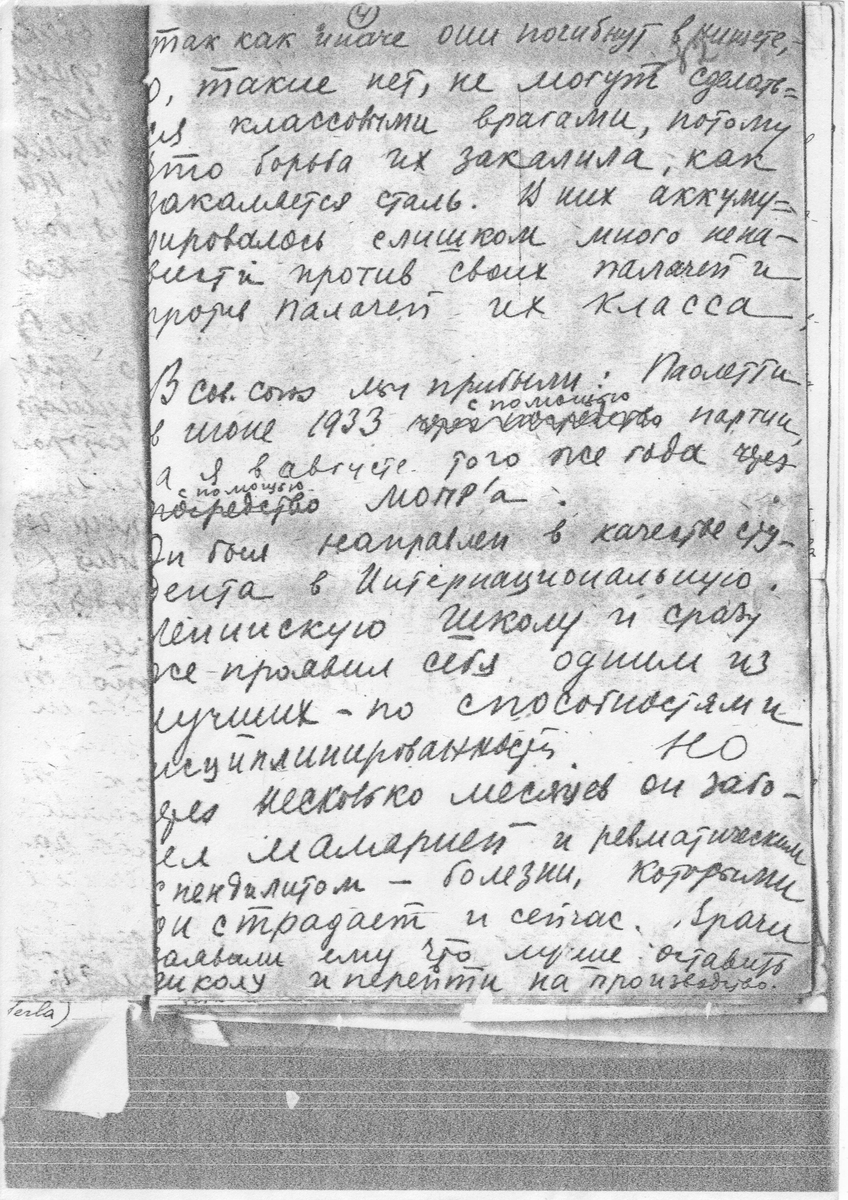 (4)
так как иначе они погибнут в нищете,-
о, такие нет, не могут сделать=
ся классовыми врагами, потому
что борьба их закалила, как
закаляется сталь. В них аккуму=
лировалось слишком много нена-
висти против своих палачей и
против палачей их класса
В сов. союз мы прибыли: Паолетти
с помощью
в июне 1933 через посредство партии,
а я в августе того же года через
с помощью
посредство МОПР'а.
Он был направлен в качестве сту-
дента в Интернациональную
Ленинскую школу и сразу
же проявил себя одним из
лучших - по способностям и
дисциплинированности. Но
через несколько месяцев он забо-
лел малярией и ревматическим
спендилитом - болезни, которыми
он страдает и сейчас. Врачи
заявили ему что лучше оставить
школу и перейти на производство.